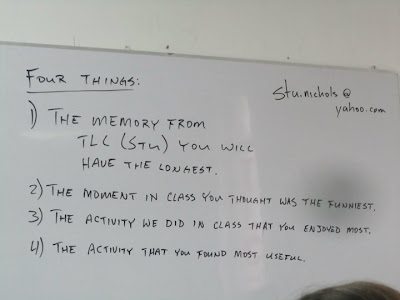 FOUR THINGS:
stu.nichols@
yahoo.com
1) THE MEMORY FROM
TLC (STU) YOU WILL
HAVE THE LONGEST.
2) THE MOMENT IN CLASS YOU THOUGHT WAS THE FUNNIEST.
3) THE ACTIVITY WE DID IN CLASS THAT YOU ENJOYED MOST.
4) THE ACTIVITY THAT YOU FOUND MOST USEFUL.